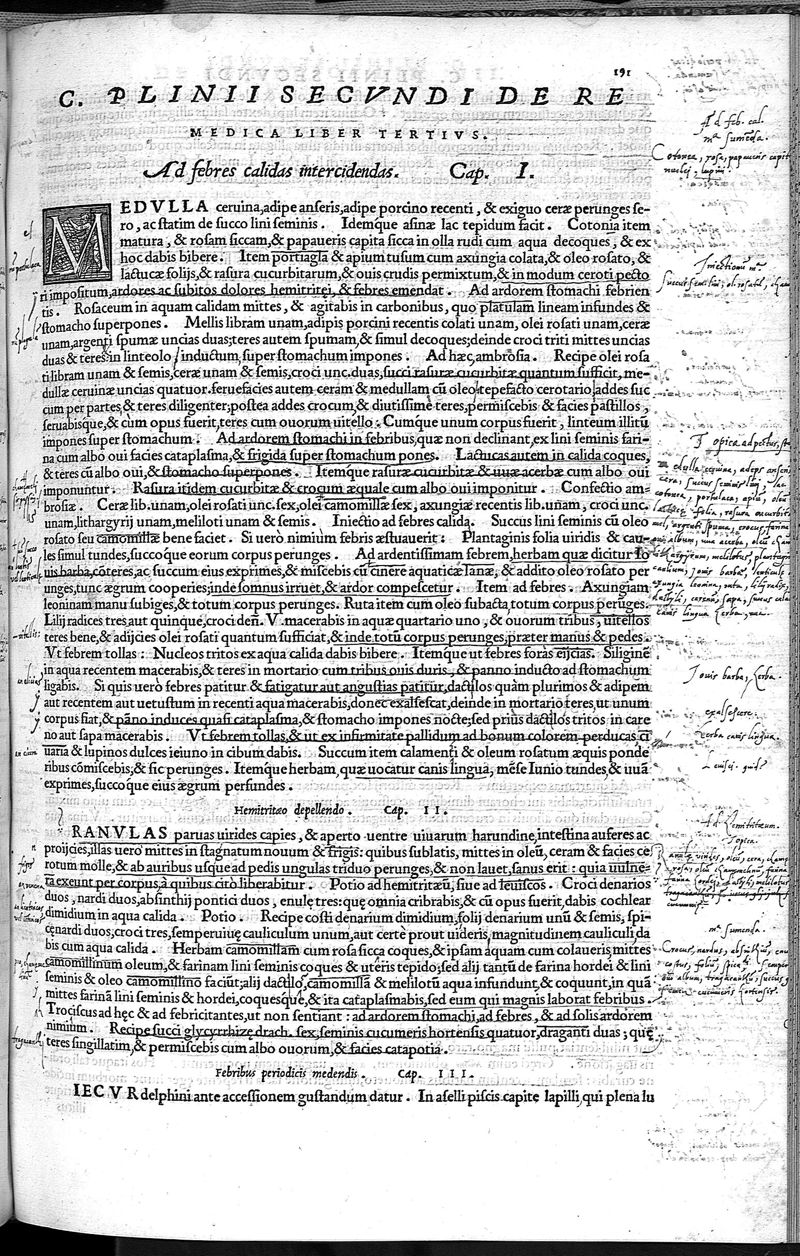 191
C. PLINII SECVNDI DE RE
MEDICA LIBER TERTIVS.
Ad febres calidas intercidendas. Cap. I.
MEDVLLA ceruina, adipe anseris, adipe porcino recenti, & exiguo ceræ perunges se-
ro, ac statim de succo lini seminis. Idemque asinæ lac tepidum facit. Cotonia item
matura, & rosam siccam, & papaueris capita sicca in olla rudi cum aqua decoques, & ex
hoc dabis bibere. Item portiagla & apium tusum cum axungia colata, & oleo rosato, &
lactucæ folijs, & rasura cucurbitarum, & ouis crudis permixtum, & in modum ceroti pecto
ri impositum, ardores ac subitos dolores hemitritęi, & febres emendat. Ad ardorem stomachi febrien
tis. Rosaceum in aquam calidam mittes, & agitabis in carbonibus, quo platulam lineam infundes &
stomacho superpones. Mellis libram unam, adipis porcini recentis colati unam, olei rosati unam, ceræ
unam, argenti spumæ uncias duas; teres autem spumam, & simul decoques; deinde croci triti mittes uncias
duas & teres in linteolo inductum, super stomachum impones. Ad hæc, ambrosia. Recipe olei rosa
ti libram unam & semis, ceræ unam & semis, croci unc. duas, succi rasuræ cucurbitæ quantum sufficit, me-
dullæ ceruinæ uncias quatuor. feruefacies autem ceram & medullam cū oleo tepefacto cerotario, addes suc
cum per partes, & teres diligenter; postea addes crocum, & diutissimè teres, permiscebis & facies pastillos,
seruabisque, & cum opus fuerit, teres cum ouorum uitello. Cumque unum corpus fuerit, linteum illitū
impones super stomachum. Ad ardorem stomachi in febribus, quæ non declinant, ex lini seminis fari-
na cum albo oui facies cataplasma, & frigida super stomachum pones. Lactucas autem in calida coques,
& teres cū albo oui, & stomacho superpones. Itemque rasuræ cucurbitæ & uuæ acerbæ cum albo oui
imponuntur. Rasura itidem cucurbitæ & crocum æquale cum albo oui imponitur. Confectio am-
brosiæ. Ceræ lib. unam, olei rosati unc. sex, olei camomillæ sex, axungiæ recentis lib. unam, croci unc.
unam, lithargyrij unam, meliloti unam & semis. Iniectio ad febres calida. Succus lini seminis cū oleo
rosato seu camomillæ bene faciet. Si uerò nimium febris æstuauerit: Plantaginis folia uiridis & cau-
les simul tundes, succoque eorum corpus perunges. Ad ardentissimam febrem, herbam quæ dicitur Io
uis barba, cōteres, ac succum eius exprimes, & miscebis cū cinere aquaticæ lanæ, & addito oleo rosato per
unges, tunc ægrum cooperies; inde somnus irruet, & ardor compescetur. Item ad febres. Axungiam
leoninam manu subiges, & totum corpus perunges. Ruta item cum oleo subacta, totum corpus perūges.
Lilij radices tres, aut quinque, croci deñ. V. macerabis in aquæ quartario uno, & ouorum tribus, uitellos
teres bene, & adijcies olei rosati quantum sufficiat, & inde totū corpus perunges, præter manus & pedes.
Vt febrem tollas: Nucleos tritos ex aqua calida dabis bibere. Itemque ut febres foràs eijcias. Siliginē
in aqua recentem macerabis, & teres in mortario cum tribus ouis duris, & panno inducto ad stomachum
ligabis. Si quis uerò febres patitur & fatigatur aut angustias patitur, dactilos quàm plurimos & adipem
aut recentem aut uetustum in recenti aqua macerabis, donec exalsescat, deinde in mortario teres, ut unum
corpus fiat, & pāno induces quasi cataplasma, & stomacho impones nocte; sed prius dactilos tritos in care
no aut sapa macerabis. Vt febrem tollas, & ut ex infirmitate pallidum ad bonum colorem perducas, ci
uaria & lupinos dulces ieiuno in cibum dabis. Succum item calamenti & oleum rosatum æquis ponde
ribus cōmiscebis; & sic perunges. Itemque herbam, quæ uocatur canis lingua, mēse Iunio tundes, & uuā
exprimes, succoque eius ægrum perfundes.
Hemitritæo depellendo. Cap. II.
RANVLAS paruas uirides capies, & aperto uentre uiuarum harundine, intestina auferes ac
proijcies, illas uerò mittes in stagnatum nouum & frigis: quibus sublatis, mittes in oleū, ceram & facies ce
rotum molle, & ab auribus usque ad pedis ungulas triduo perunges, & non lauet, sanus erit: quia uulne-
ra exeunt per corpus, à quibus citò liberabitur. Potio ad hemitritæū, siue ad leuiscos. Croci denarios
duos, nardi duos, absinthij pontici duos, enulę tres: quę omnia cribrabis, & cū opus fuerit, dabis cochlear
dimidium in aqua calida. Potio. Recipe costi denarium dimidium, folij denarium unū & semis, spi-
cęnardi duos, croci tres, semperuiuę cauliculum unum, aut certè prout uideris, magnitudinem cauliculi, da
bis cum aqua calida. Herbam camomillam cum rosa sicca coques, & ipsam aquam cum colaueris, mittes
camomillinum oleum, & farinam lini seminis coques & uteris tepido; sed alij tantū de farina hordei & lini
seminis & oleo camomillino faciūt; alij dactilos, camomillā & melilotū aqua infundunt, & coquunt, in quā
mittes farinā lini seminis & hordei, coquesque, & ita cataplasmabis, sed eum qui magnis laborat febribus.
Trociscus ad hęc & ad febricitantes, ut non sentiant: ad ardorem stomachi, ad febres, & ad solis ardorem
nimium. Recipe succi glycyrrhizę drach. sex, seminis cucumeris hortensis quatuor, draganti duas; quę
teres singillatim, & permiscebis cum albo ouorum, & facies catapotia.
Febribus periodicis medendis. Cap. III.
IECVR delphini ante accessionem gustandum datur. In aselli piscis capite lapilli, qui plena lu
Ad feb. cal.
Cotonea, rosa, papaueris capit
Topica ad pectus, sto
Iouis barba, herba.
exalsescere.
herba canis lingua.
Leuisci. quid?
Ad Hemitritæum.
Topica.